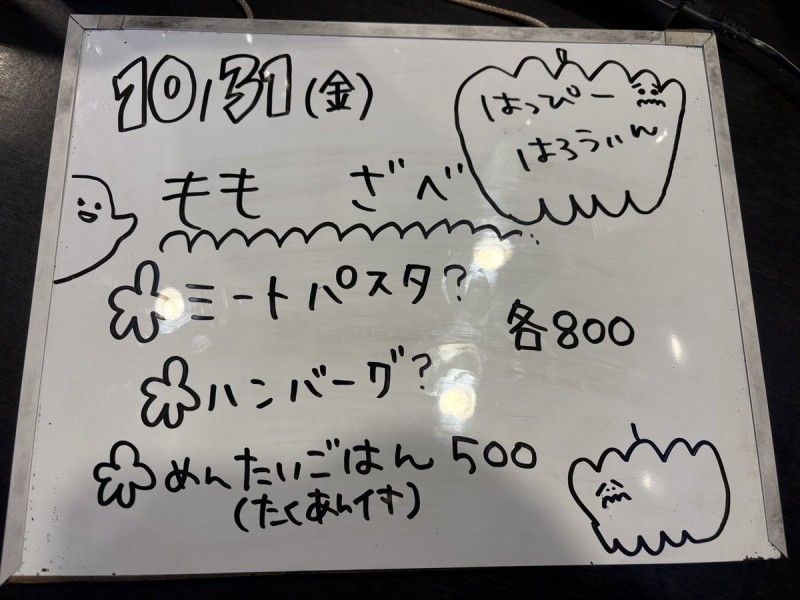 10/31(金)
はっぴー
はろうぃん
もも ざべ
ミートパスタ?
各800
ハンバーグ?
めんたいごはん 500
(たくあん付す)